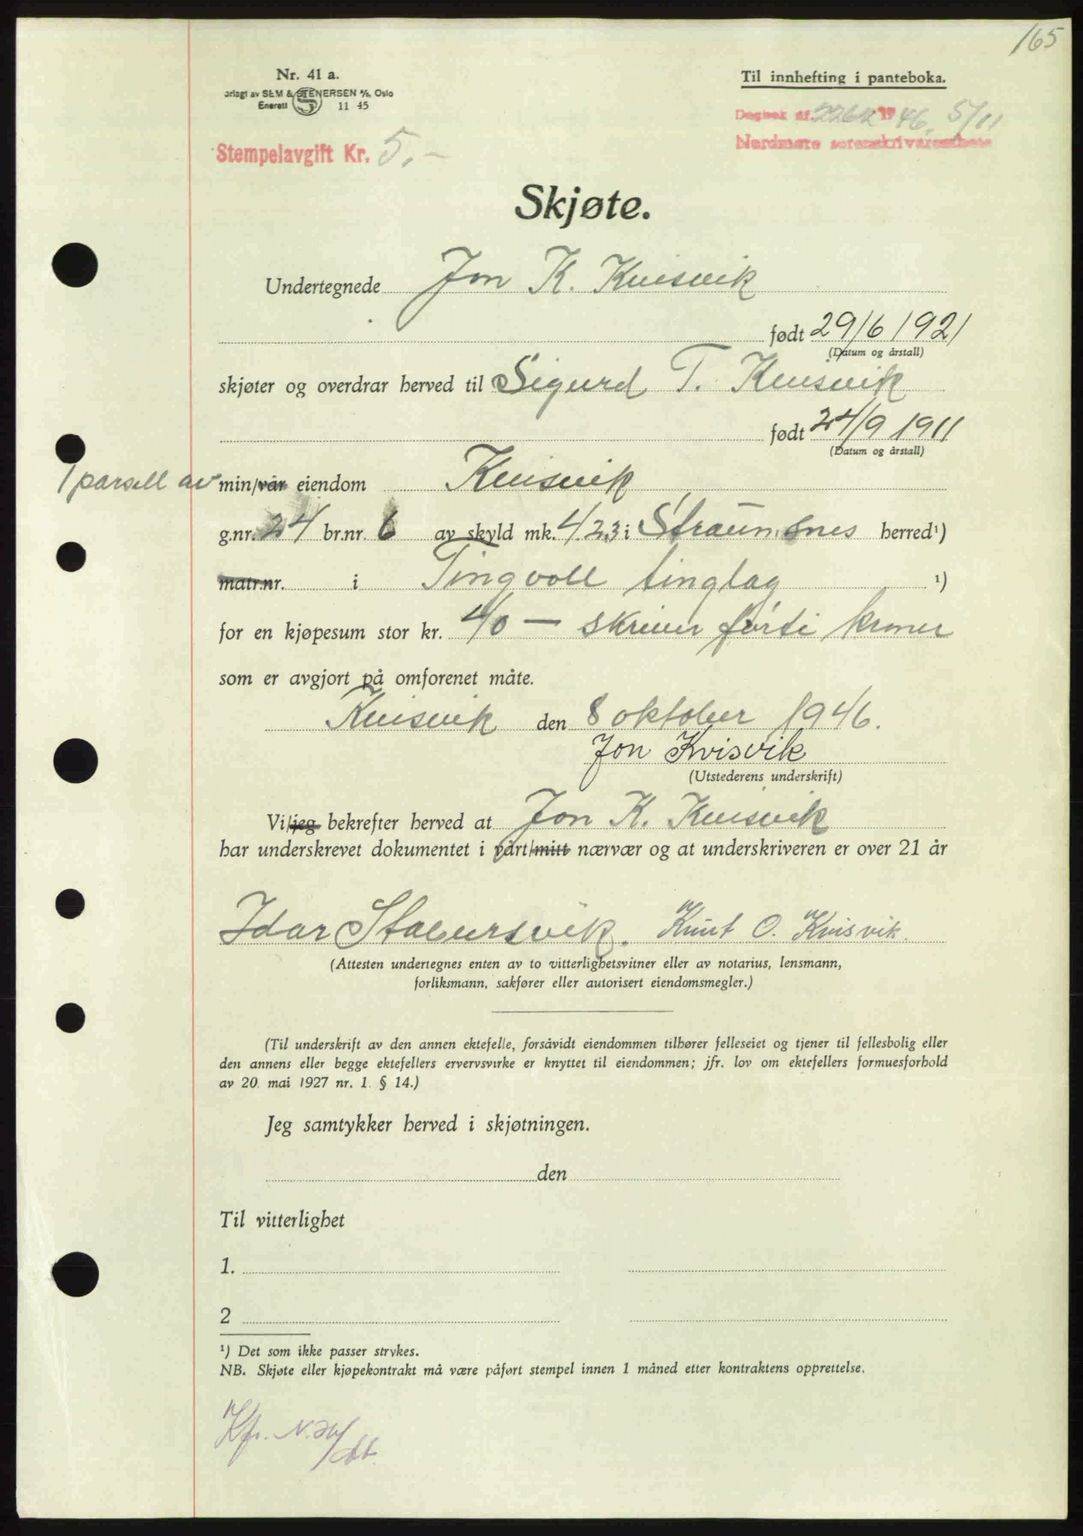 165
Nr. 41 a.
Til innhefting i panteboka.
orlagt av SEM & STENERSEN A/S, Oslo
Enerett S 11 45
Dagbok nr. 2262 1946, 5/11
Nordmøre sorenskriverembete
Stempelavgift Kr. 5,-
Skjøte.
Undertegnede Jon K. Kvisvik
født 29/6 1921
(Datum og årstall)
skjøter og overdrar herved til Sigurd T. Kvisvik
født 24/9 1911
(Datum og årstall)
1 parsell av min/vår eiendom Kvisvik
g.nr. 24 br.nr. 6 av skyld mk. 4,23 i Straumsnes herred¹)
matr.nr. i Tingvoll tinglag ¹)
for en kjøpesum stor kr. 40 — skriver førti kroner
som er avgjort på omforenet måte.
Kvisvik den 8 oktober 1946.
Jon Kvisvik
(Utstederens underskrift)
Vi/jeg bekrefter herved at Jon K. Kvisvik
har underskrevet dokumentet i vårt/mitt nærvær og at underskriveren er over 21 år
Idar Stabursvik. Knut O. Kvisvik.
(Attesten undertegnes enten av to vitterlighetsvitner eller av notarius, lensmann,
forliksmann, sakfører eller autorisert eiendomsmegler.)
(Til underskrift av den annen ektefelle, forsåvidt eiendommen tilhører felleseiet og tjener til fellesbolig eller
den annens eller begge ektefellers ervervsvirke er knyttet til eiendommen; jfr. lov om ektefellers formuesforhold
av 20. mai 1927 nr. 1 § 14.)
Jeg samtykker herved i skjøtningen.
den
Til vitterlighet
1.
2
¹) Det som ikke passer strykes.
NB. Skjøte eller kjøpekontrakt må være påført stempel innen 1 måned etter kontraktens opprettelse.